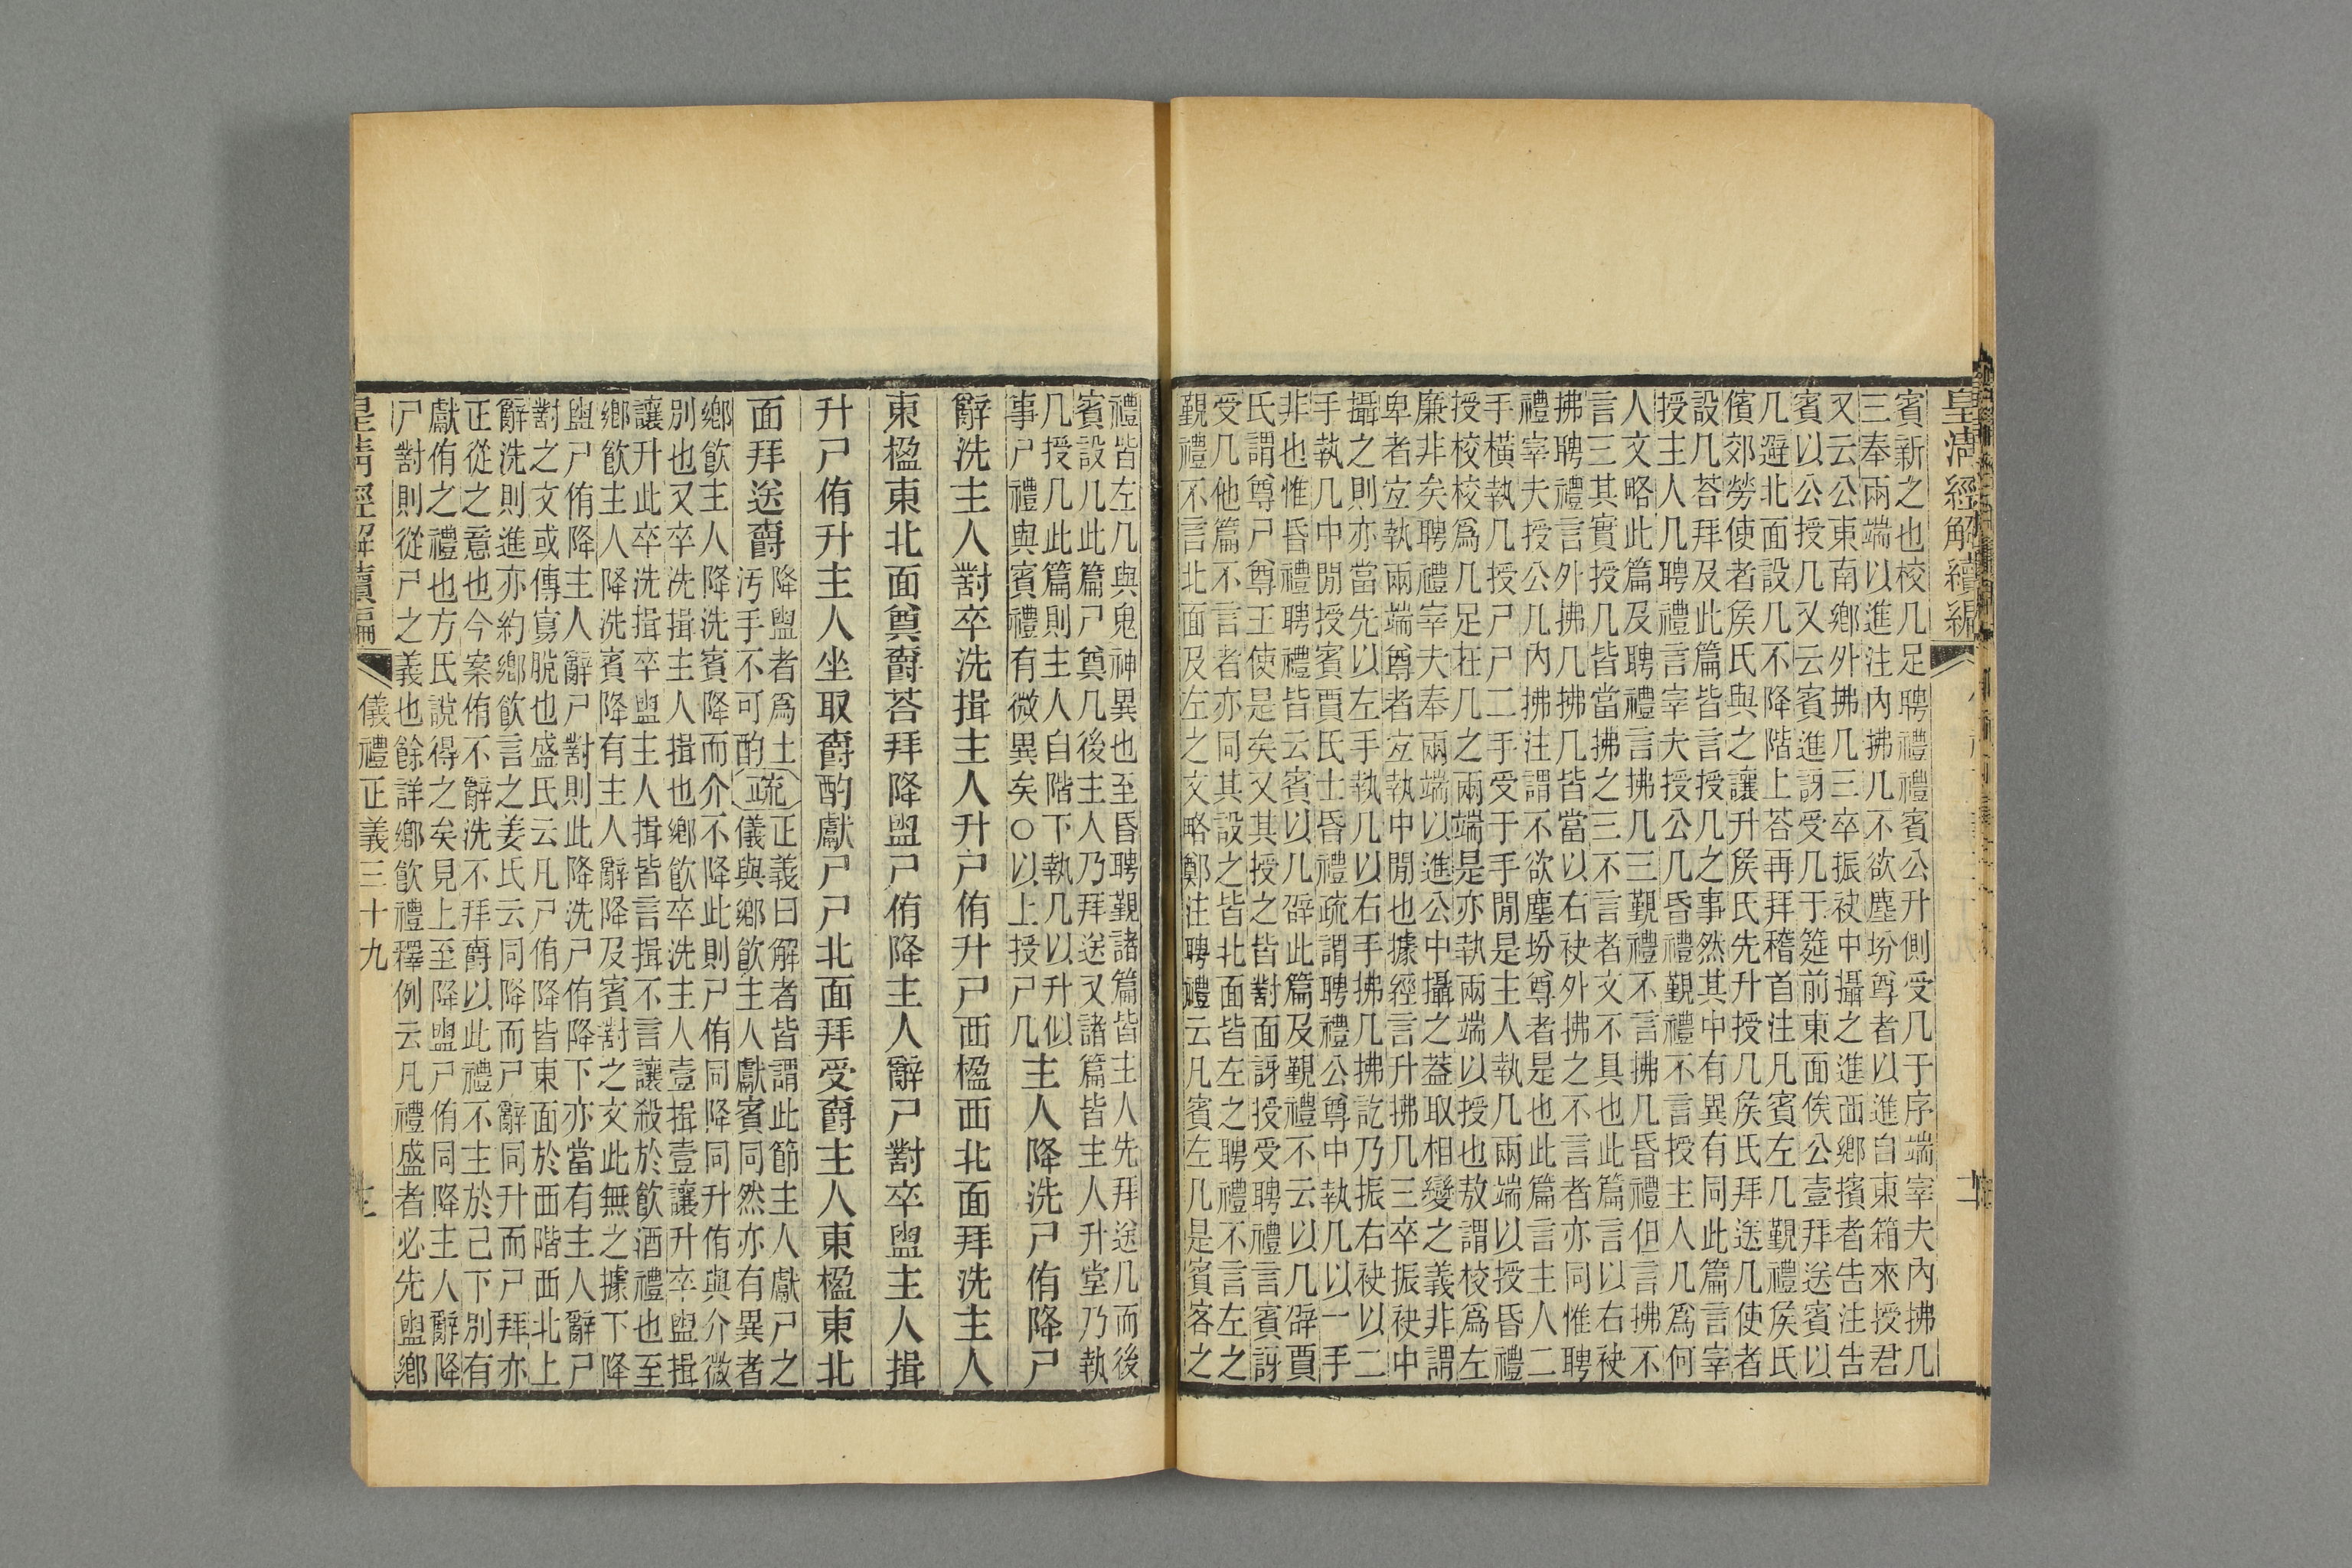 皇清經解續編
賓新之也校几足聘禮禮賓公升側受几于序端宰夫內拂几
三奉兩端以進注內拂几不欲塵坋尊者以進自東箱來授君
又云公東南鄉外拂几三卒振袂中攝之進西鄉擯者告注告
賓以公授几又云賓進訝受几于筵前東面俟公壹拜送賓以
几避北面設几不降階上荅再拜稽首注凡賓左几覲禮矦氏
儐郊勞使者矦氏與之讓升矦氏先升授几矦氏拜送几使者
設几荅拜及此篇皆言授几之事然其中有異有同此篇言宰
授主人几聘禮言宰夫授公几昏禮覲禮不言授主人几爲何
人文略此篇及聘禮言拂几三覲禮不言拂几昏禮但言拂不
言三其實授几皆當拂之三不言者文不具也此篇言以右袂
拂聘禮言外拂几拂几皆當以右袂外拂之不言者亦同惟聘
禮宰夫授公几內拂注謂不欲塵坋尊者是也此篇言主人二
手橫執几授尸尸二手受于手閒是主人執几兩端以授昏禮
授校校爲几足在几之兩端是亦執兩端以授也敖謂校爲左
廉非矣聘禮宰夫奉兩端以進公中攝之蓋取相變之義非謂
卑者宜執兩端尊者宜執中閒也據經言升拂几三卒振袂中
攝之則亦當先以左手執几以右手拂几拂訖乃振右袂以二
手執几中閒授賓賈氏士昏禮疏謂聘禮公尊中執几以一手
非也惟昏禮聘禮皆云賓以几辟此篇及覲禮不云以几辟賈
氏謂尊尸尊王使是矣又其授之皆對面訝授受聘禮言賓訝
受几他篇不言者亦同其設之皆北面皆左之聘禮不言左之
覲禮不言北面及左之文略鄭注聘禮云凡賓左几是賓客之
禮皆左几與鬼神異也至昏聘覲諸篇皆主人先拜送几而後
賓設几此篇尸奠几後主人乃拜送又諸篇皆主人升堂乃執
几授几此篇則主人自階下執几以升似
事尸禮與賓禮有微異矣○以上授尸几
主人降洗尸侑降尸
辭洗主人對卒洗揖主人升尸侑升尸西楹西北面拜洗主人
東楹東北面奠爵荅拜降盥尸侑降主人辭尸對卒盥主人揖
升尸侑升主人坐取爵酌獻尸尸北面拜受爵主人東楹東北
面拜送爵
降盥者爲土
汚手不可酌
疏
正義曰解者皆謂此節主人獻尸之
儀與鄉飲主人獻賓同然亦有異者
鄉飲主人降洗賓降而介不降此則尸侑同降同升侑與介微
別也又卒洗揖主人揖也鄉飲卒洗主人壹揖壹讓升卒盥揖
讓升此卒洗揖卒盥主人揖皆言揖不言讓殺於飲酒禮也至
鄉飲主人降洗賓降有主人辭降及賓對之文此無之據下降
盥尸侑降主人辭尸對則此降洗尸侑降下亦當有主人辭尸
對之文或傳寫脫也盛氏云凡尸侑降皆東面於西階西北上
辭洗則進亦約鄉飲言之姜氏云同降而尸辭同升而尸拜亦
正從之意也今案侑不辭洗不拜爵以此禮不主於己下別有
獻侑之禮也方氏說得之矣見上至降盥尸侑同降主人辭降
尸對則從尸之義也餘詳鄉飲禮釋例云凡禮盛者必先盥鄉
皇清經解續編
儀禮正義三十九